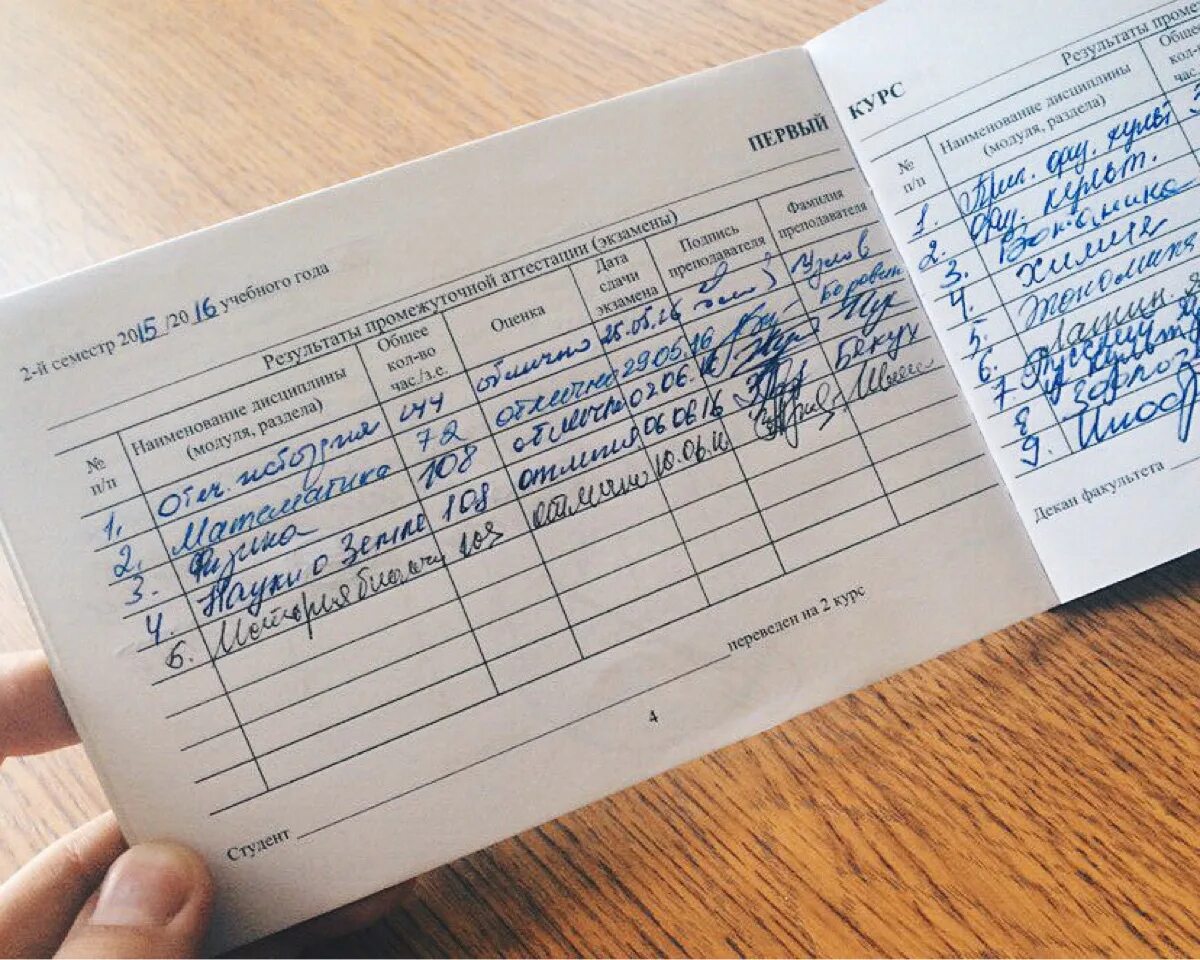 ПЕРВЫЙ
2-й семестр 2015/2016 учебного года
Результаты промежуточной аттестации (экзамены)
№ п/п
Наименование дисциплины (модуля, раздела)
Общее кол-во час./з.е.
Оценка
Дата сдачи экзамена
Подпись преподавателя
Фамилия преподавателя
1. Отеч. история 144 отлично 25.05.16 Узлов
2. Математика 72 отлично 29.05.16
3. Физика 108 отлично 02.06.16 Жук
4. Науки о Земле 108 отлично 06.06.16 Бекух
5. История биологии 108 отлично 10.06.16
Студент
переведен на 2 курс
4
КУРС
Результаты проме
№ п/п
Наименование дисциплины (модуля, раздела)
Общее кол-во час.
1. физ. культ
2. физ. культ.
3. Ботаника
4. Химия
5. Экономика
6. Латин.
7. Русский
8
9. Иностр
Декан факультета